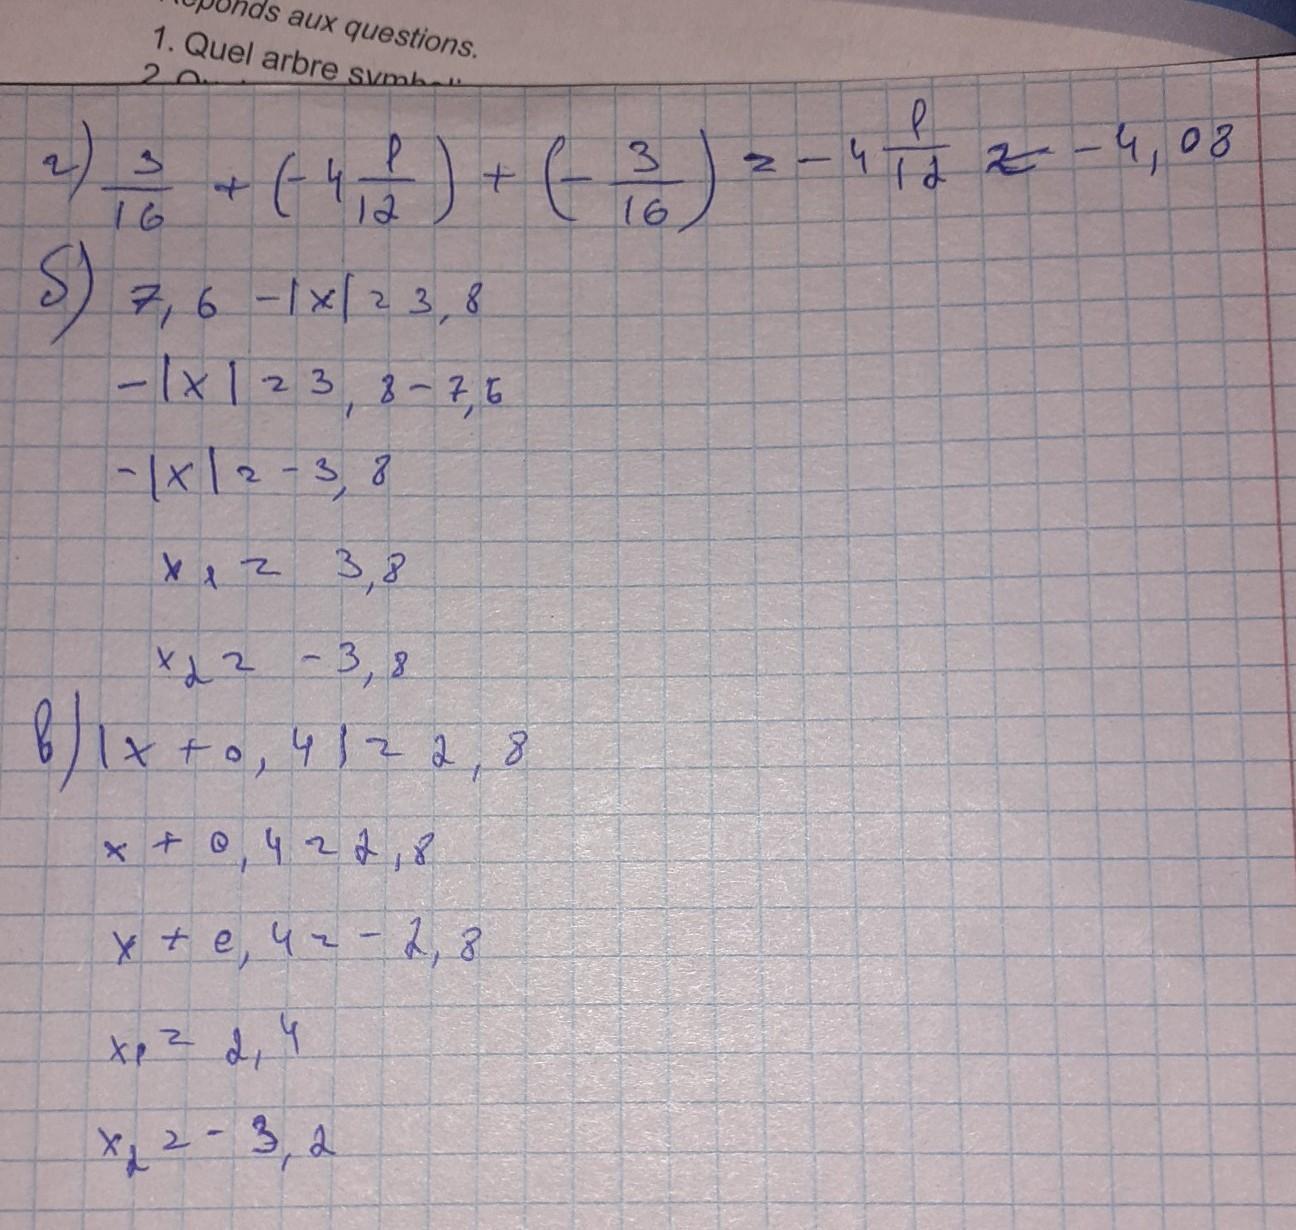 éponds aux questions.
1. Quel arbre symb
2
г) 3/16 + (-4 1/12) + (- 3/16) = -4 1/12 = -4,08
б) 7,6 - |x| = 3,8
-|x| = 3,8 - 7,6
-|x| = -3,8
x₁ = 3,8
x₂ = -3,8
в) |x + 0,4| = 2,8
x + 0,4 = 2,8
x + 0,4 = -2,8
x₁ = 2,4
x₂ = -3,2